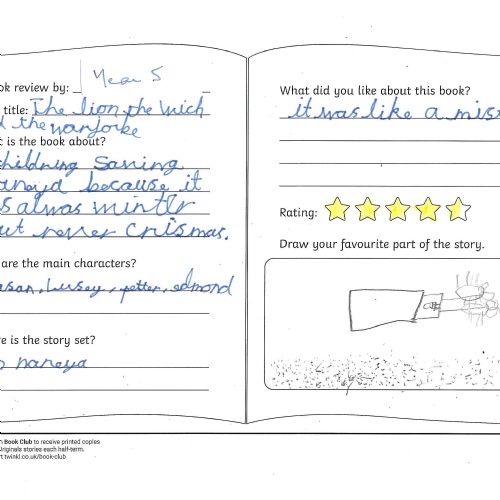 ok review by: Year 5
title: The lion the wich
d the warjoke
t is the book about?
childning saving
aneyd because it
s alwas wintlr
ut never crismas.
are the main characters?
asan, lusey, petter, edmond
re is the story set?
naneya
n Book Club to receive printed copies
Originals stories each half-term.
t twinkl.co.uk/book-club
What did you like about this book?
it was like a mis
Rating:
Draw your favourite part of the story.